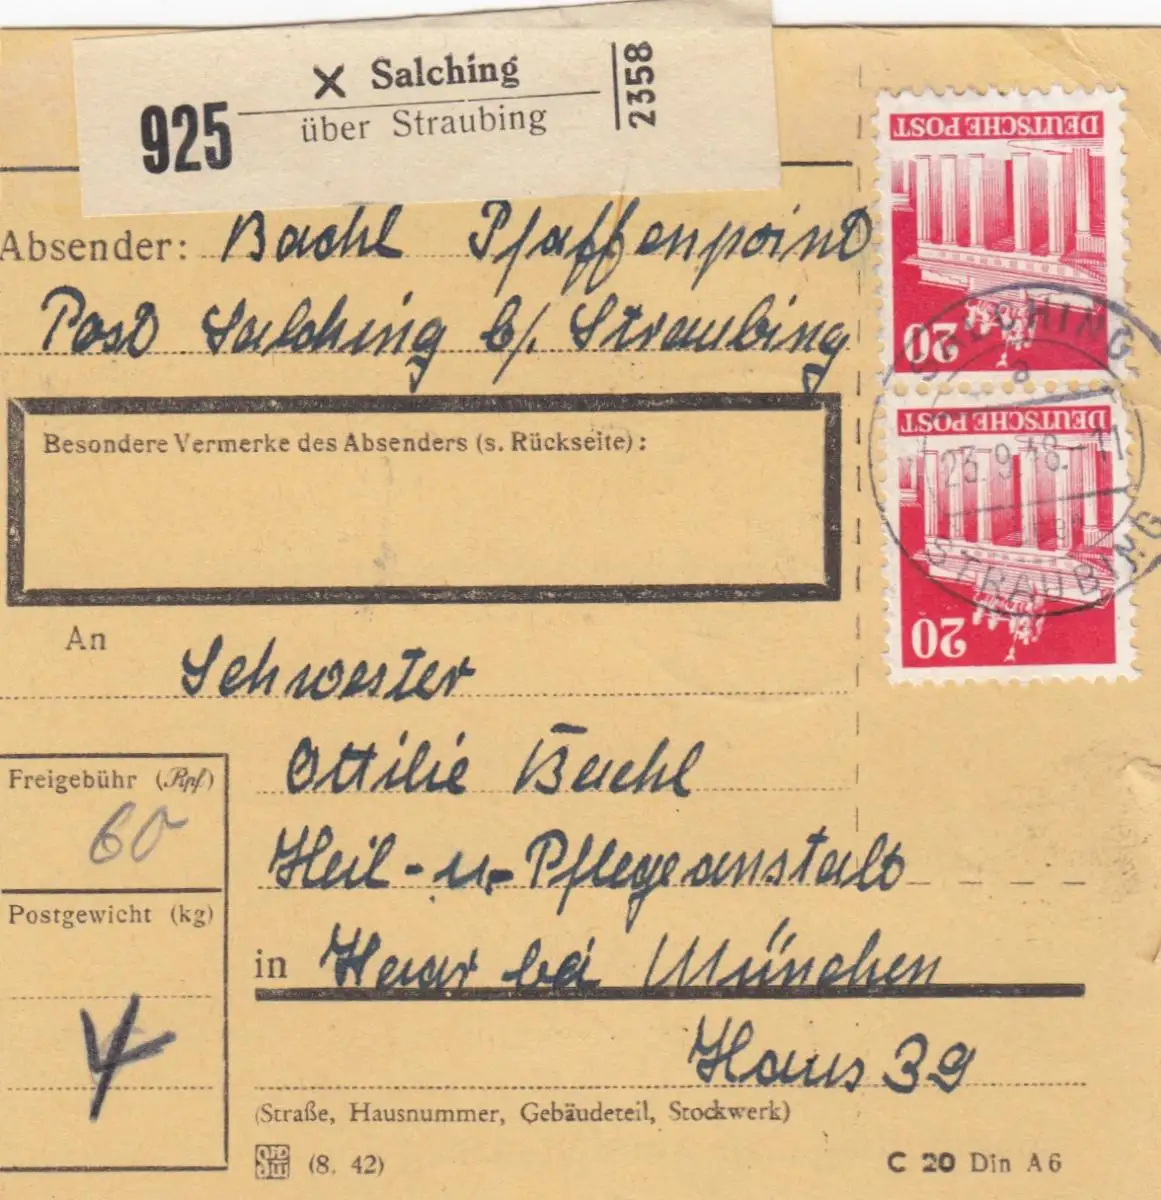 925
X Salching
über Straubing
2358
Absender: Bachl Pfaffenpoint
Post Salching b/. Straubing
DEUTSCHE POST
20
DEUTSCHE POST
20
SALCHING
a
23.9.48.-11
STRAUBING
Besondere Vermerke des Absenders (s. Rückseite):
An
Schwester
Ottilie Bachl
Heil- u- Pflegeanstalt
in Haar bei München
Haus 39
(Straße, Hausnummer, Gebäudeteil, Stockwerk)
Freigebühr (Rpf)
60
Postgewicht (kg)
4
(8. 42)
C 20 Din A6